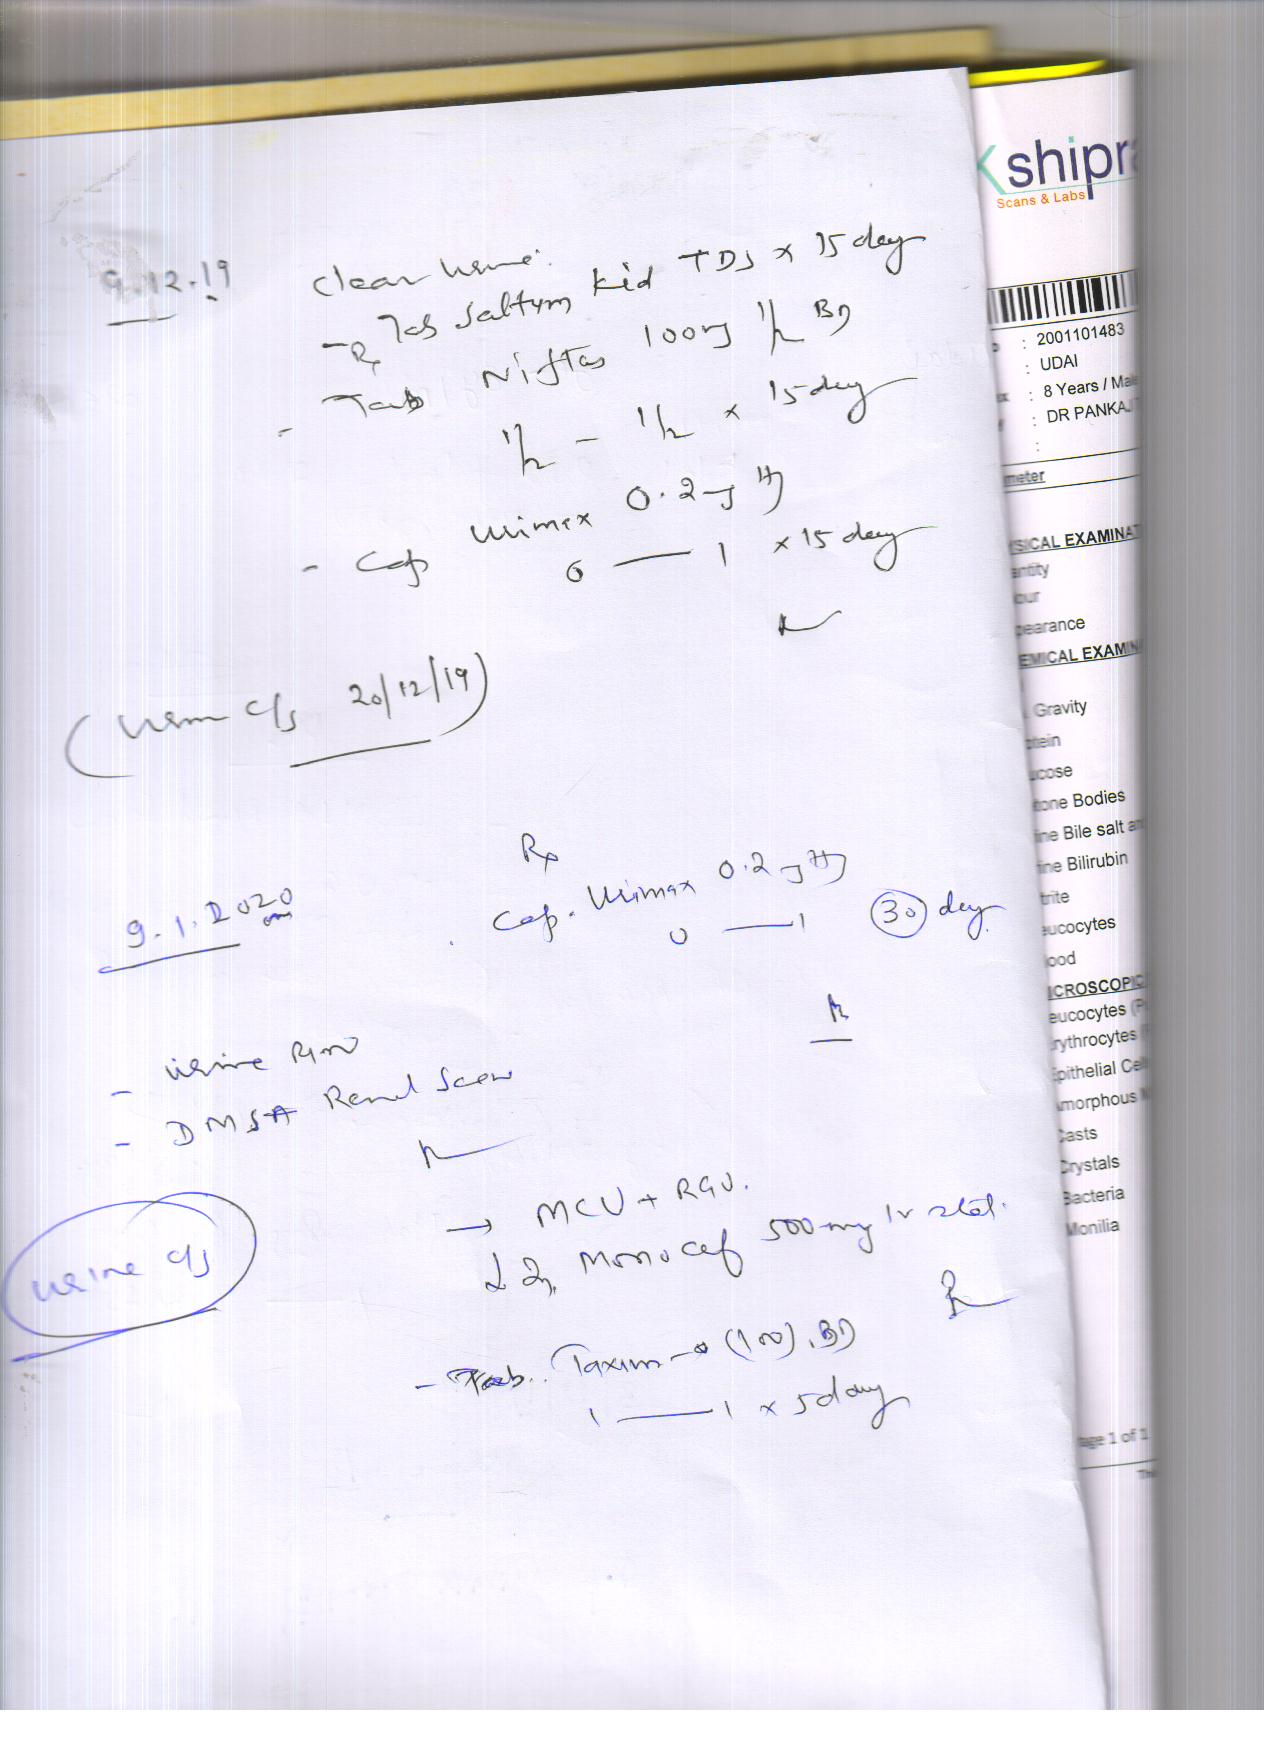 9.12.19
clear urine.
- Rx Tab Saltum kid TDS x 15 day
- Tab Niftas 100mg 1/2 BD
1/2 - 1/2 x 15 day
- Cap Urimax 0.2mg
0 — 1 x 15 day
(Urine c/s 20/12/19)
9.1.2020
Rx
Cap. Urimax 0.2mg
0 — 1 (30) day
- Urine R/M
- DMSA Renal Scan
→ MCU + RGU.
Monocef 500mg IV stat.
Urine c/s
- Tab. Taxim-o (100) BD
1 — 1 x 5 day
kshipra
Scans & Labs
: 2001101483
: UDAI
: 8 Years / Male
: DR PANKAJ
:
meter
SICAL EXAMINAT
antity
our
pearance
EMICAL EXAMIN
Gravity
otein
ucose
tone Bodies
ine Bile salt an
ine Bilirubin
trite
eucocytes
ood
ICROSCOPIC
eucocytes (P
rythrocytes
Epithelial Cel
Amorphous M
Casts
Crystals
Bacteria
Monilia
age 1 of 1